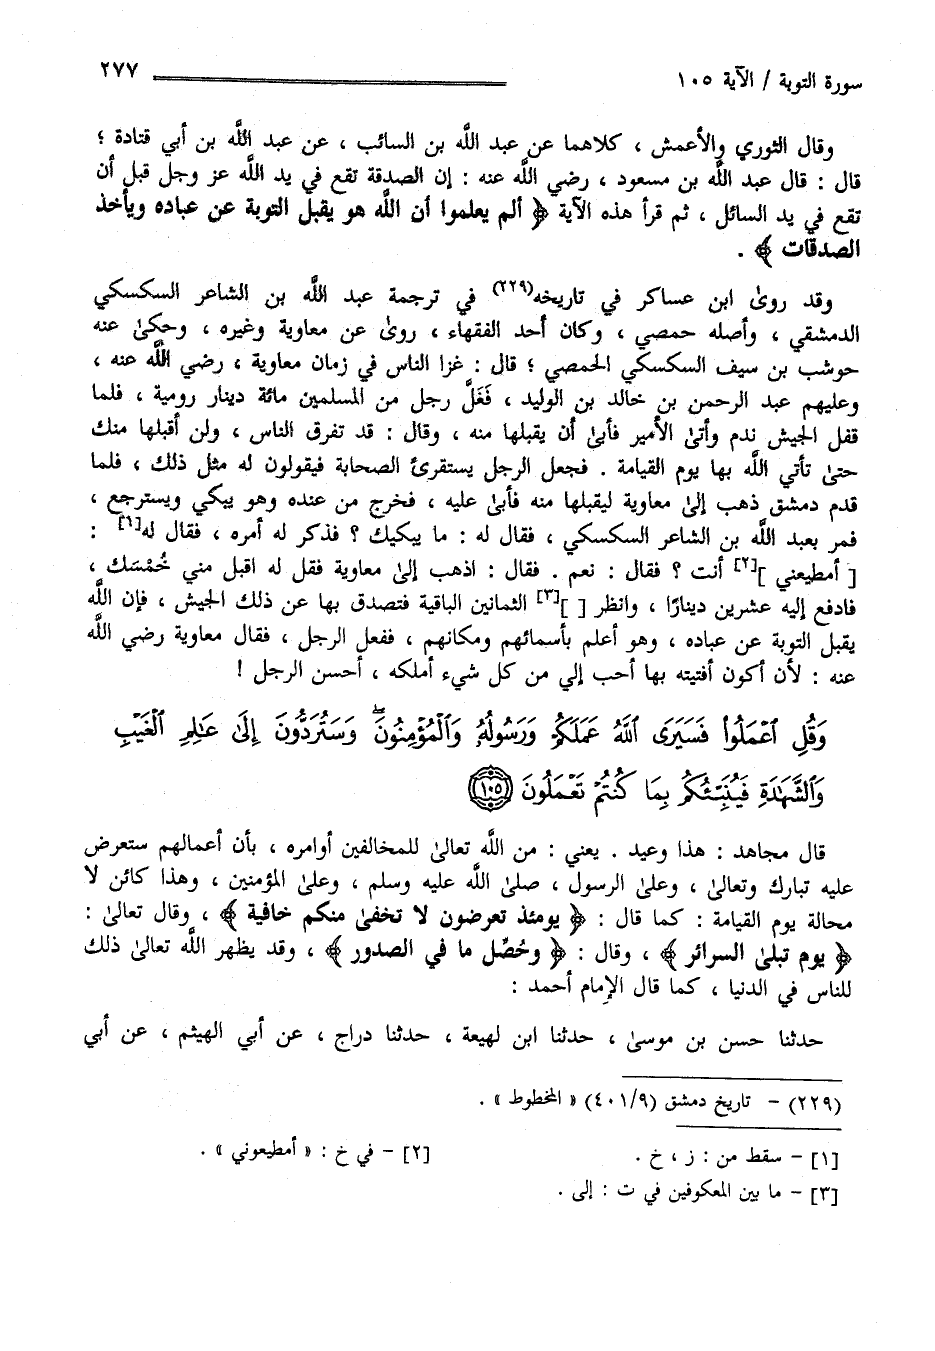 سورة التوبة / الآية ١٠٥ ٢٧٧
وقال الثوري والأعمش ، كلاهما عن عبد اللَّه بن السائب ، عن عبد اللَّه بن أبي قتادة ؛
قال : قال عبد اللَّه بن مسعود ، رضي اللَّه عنه : إن الصدقة تقع في يد اللَّه عز وجل قبل أن
تقع في يد السائل ، ثم قرأ هذه الآية ﴿ ألم يعلموا أن اللَّه هو يقبل التوبة عن عباده ويأخذ
الصدقات ﴾ .
وقد روىٰ ابن عساكر في تاريخه(٢٢٩) في ترجمة عبد اللَّه بن الشاعر السكسكي
الدمشقي ، وأصله حمصي ، وكان أحد الفقهاء ، روىٰ عن معاوية وغيره ، وحكىٰ عنه
حوشب بن سيف السكسكي الحمصي ؛ قال : غزا الناس في زمان معاوية ، رضي اللَّه عنه ،
وعليهم عبد الرحمن بن خالد بن الوليد ، فَغَلَّ رجل من المسلمين مائة دينار رومية ، فلما
قفل الجيش ندم وأتىٰ الأمير فأبىٰ أن يقبلها منه ، وقال : قد تفرق الناس ، ولن أقبلها منك
حتىٰ تأتي اللَّه بها يوم القيامة . فجعل الرجل يستقرئ الصحابة فيقولون له مثل ذلك ، فلما
قدم دمشق ذهب إلىٰ معاوية ليقبلها منه فأبىٰ عليه ، فخرج من عنده وهو يبكي ويسترجع ،
فمر بعبد اللَّه بن الشاعر السكسكي ، فقال له : ما يبكيك ؟ فذكر له أمره ، فقال له[١] :
[ أمطيعني ][٢] أنت ؟ فقال : نعم . فقال : اذهب إلىٰ معاوية فقل له اقبل مني خُمْسَك ،
فادفع إليه عشرين دينارًا ، وانظر [ ][٣] الثمانين الباقية فتصدق بها عن ذلك الجيش ، فإن اللَّه
يقبل التوبة عن عباده ، وهو أعلم بأسمائهم ومكانهم ، ففعل الرجل ، فقال معاوية رضي اللَّه
عنه : لأن أكون أفتيته بها أحب إلي من كل شيء أملكه ، أحسن الرجل !
وَقُلِ ٱعْمَلُوا۟ فَسَيَرَى ٱللَّهُ عَمَلَكُمْ وَرَسُولُهُۥ وَٱلْمُؤْمِنُونَ ۖ وَسَتُرَدُّونَ إِلَىٰ عَٰلِمِ ٱلْغَيْبِ
وَٱلشَّهَٰدَةِ فَيُنَبِّئُكُم بِمَا كُنتُمْ تَعْمَلُونَ ﴿١٠٥﴾
قال مجاهد : هذا وعيد . يعني : من اللَّه تعالىٰ للمخالفين أوامره ، بأن أعمالهم ستعرض
عليه تبارك وتعالىٰ ، وعلىٰ الرسول ، صلىٰ اللَّه عليه وسلم ، وعلىٰ المؤمنين ، وهذا كائن لا
محالة يوم القيامة : كما قال : ﴿ يومئذ تعرضون لا تخفىٰ منكم خافية ﴾ ، وقال تعالىٰ :
﴿ يوم تبلىٰ السرائر ﴾ ، وقال : ﴿ وحُصِّل ما في الصدور ﴾ ، وقد يظهر اللَّه تعالىٰ ذلك
للناس في الدنيا ، كما قال الإمام أحمد :
حدثنا حسن بن موسىٰ ، حدثنا ابن لهيعة ، حدثنا دراج ، عن أبي الهيثم ، عن أبي
(٢٢٩) - تاريخ دمشق (٤٠١/٩) « المخطوط » .
[١] - سقط من : ز ، خ . [٢] - في خ : « أمطيعوني » .
[٣] - ما بين المعكوفين في ت : إلى .